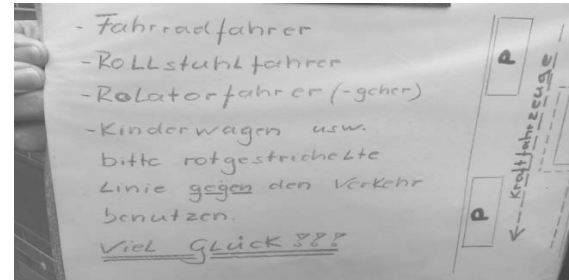 - Fahrradfahrer
- Rollstuhlfahrer
- Rolatorfahrer (-geher)
- Kinderwagen usw.
bitte rotgestrichelte
Linie gegen den Verkehr
benutzen.
Viel Glück ???
P
Kraftfahrzeuge
P